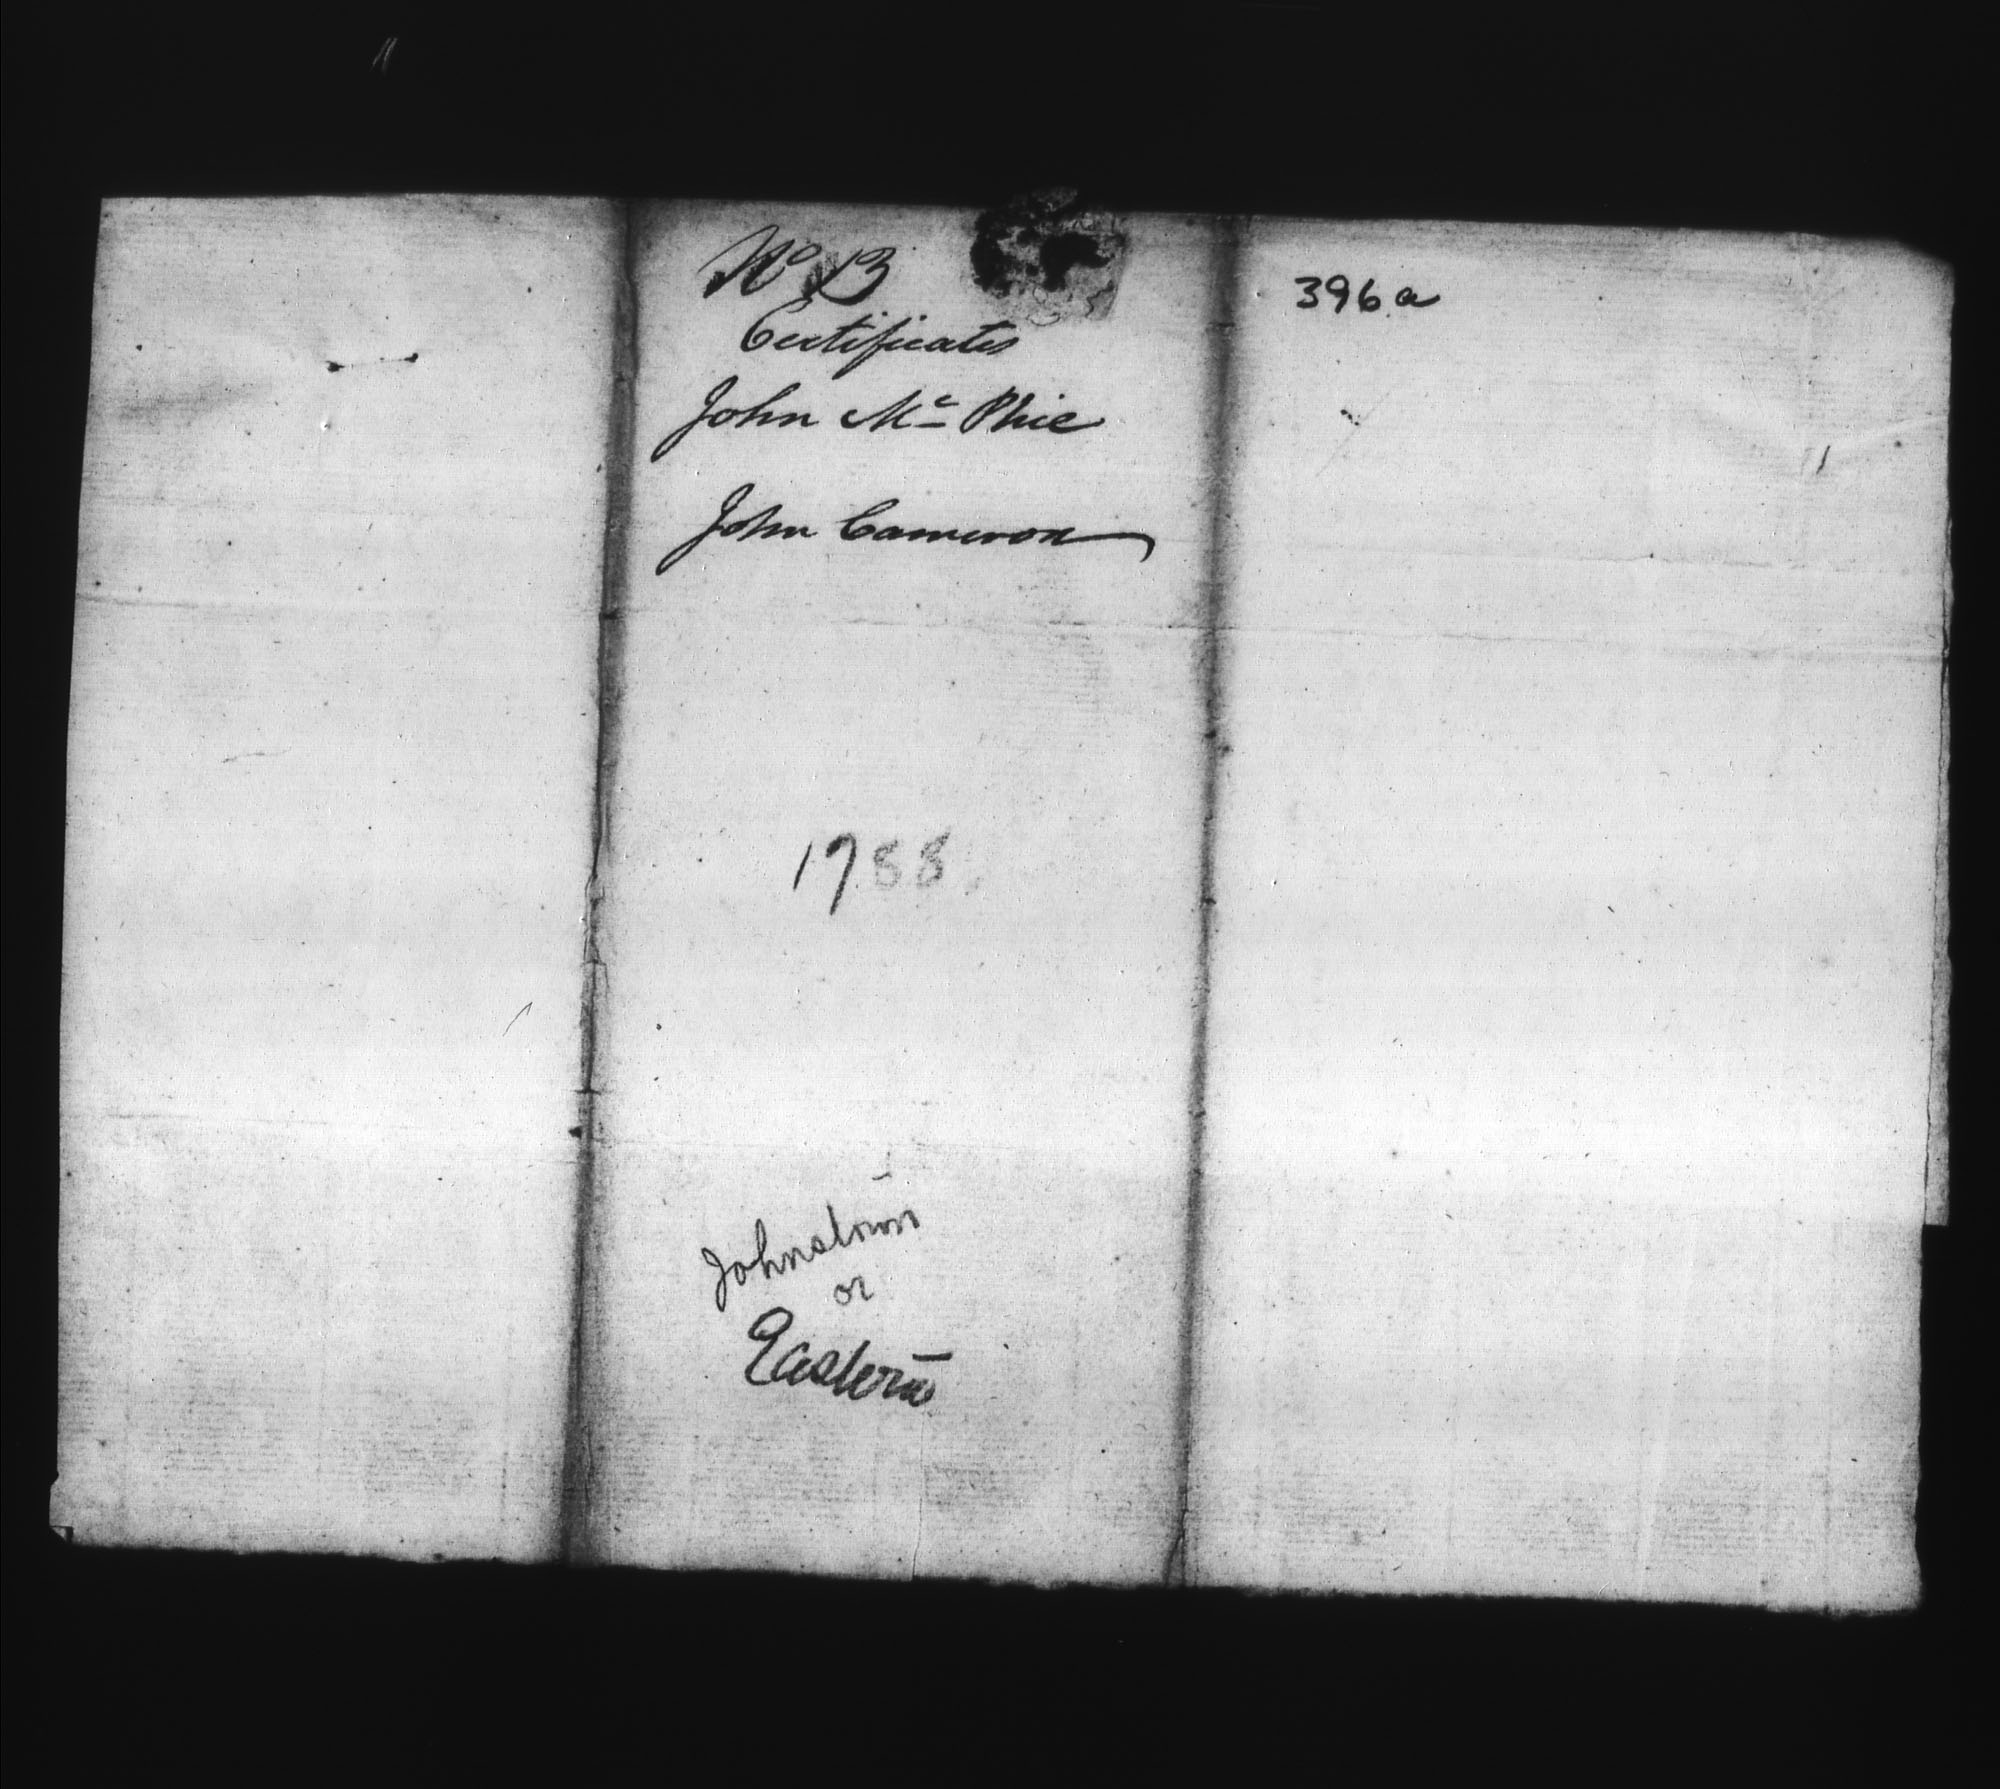 No 13
Certificates
John Mc Phie
John Cameron
1788
Johnstown
or
Eastern
396a